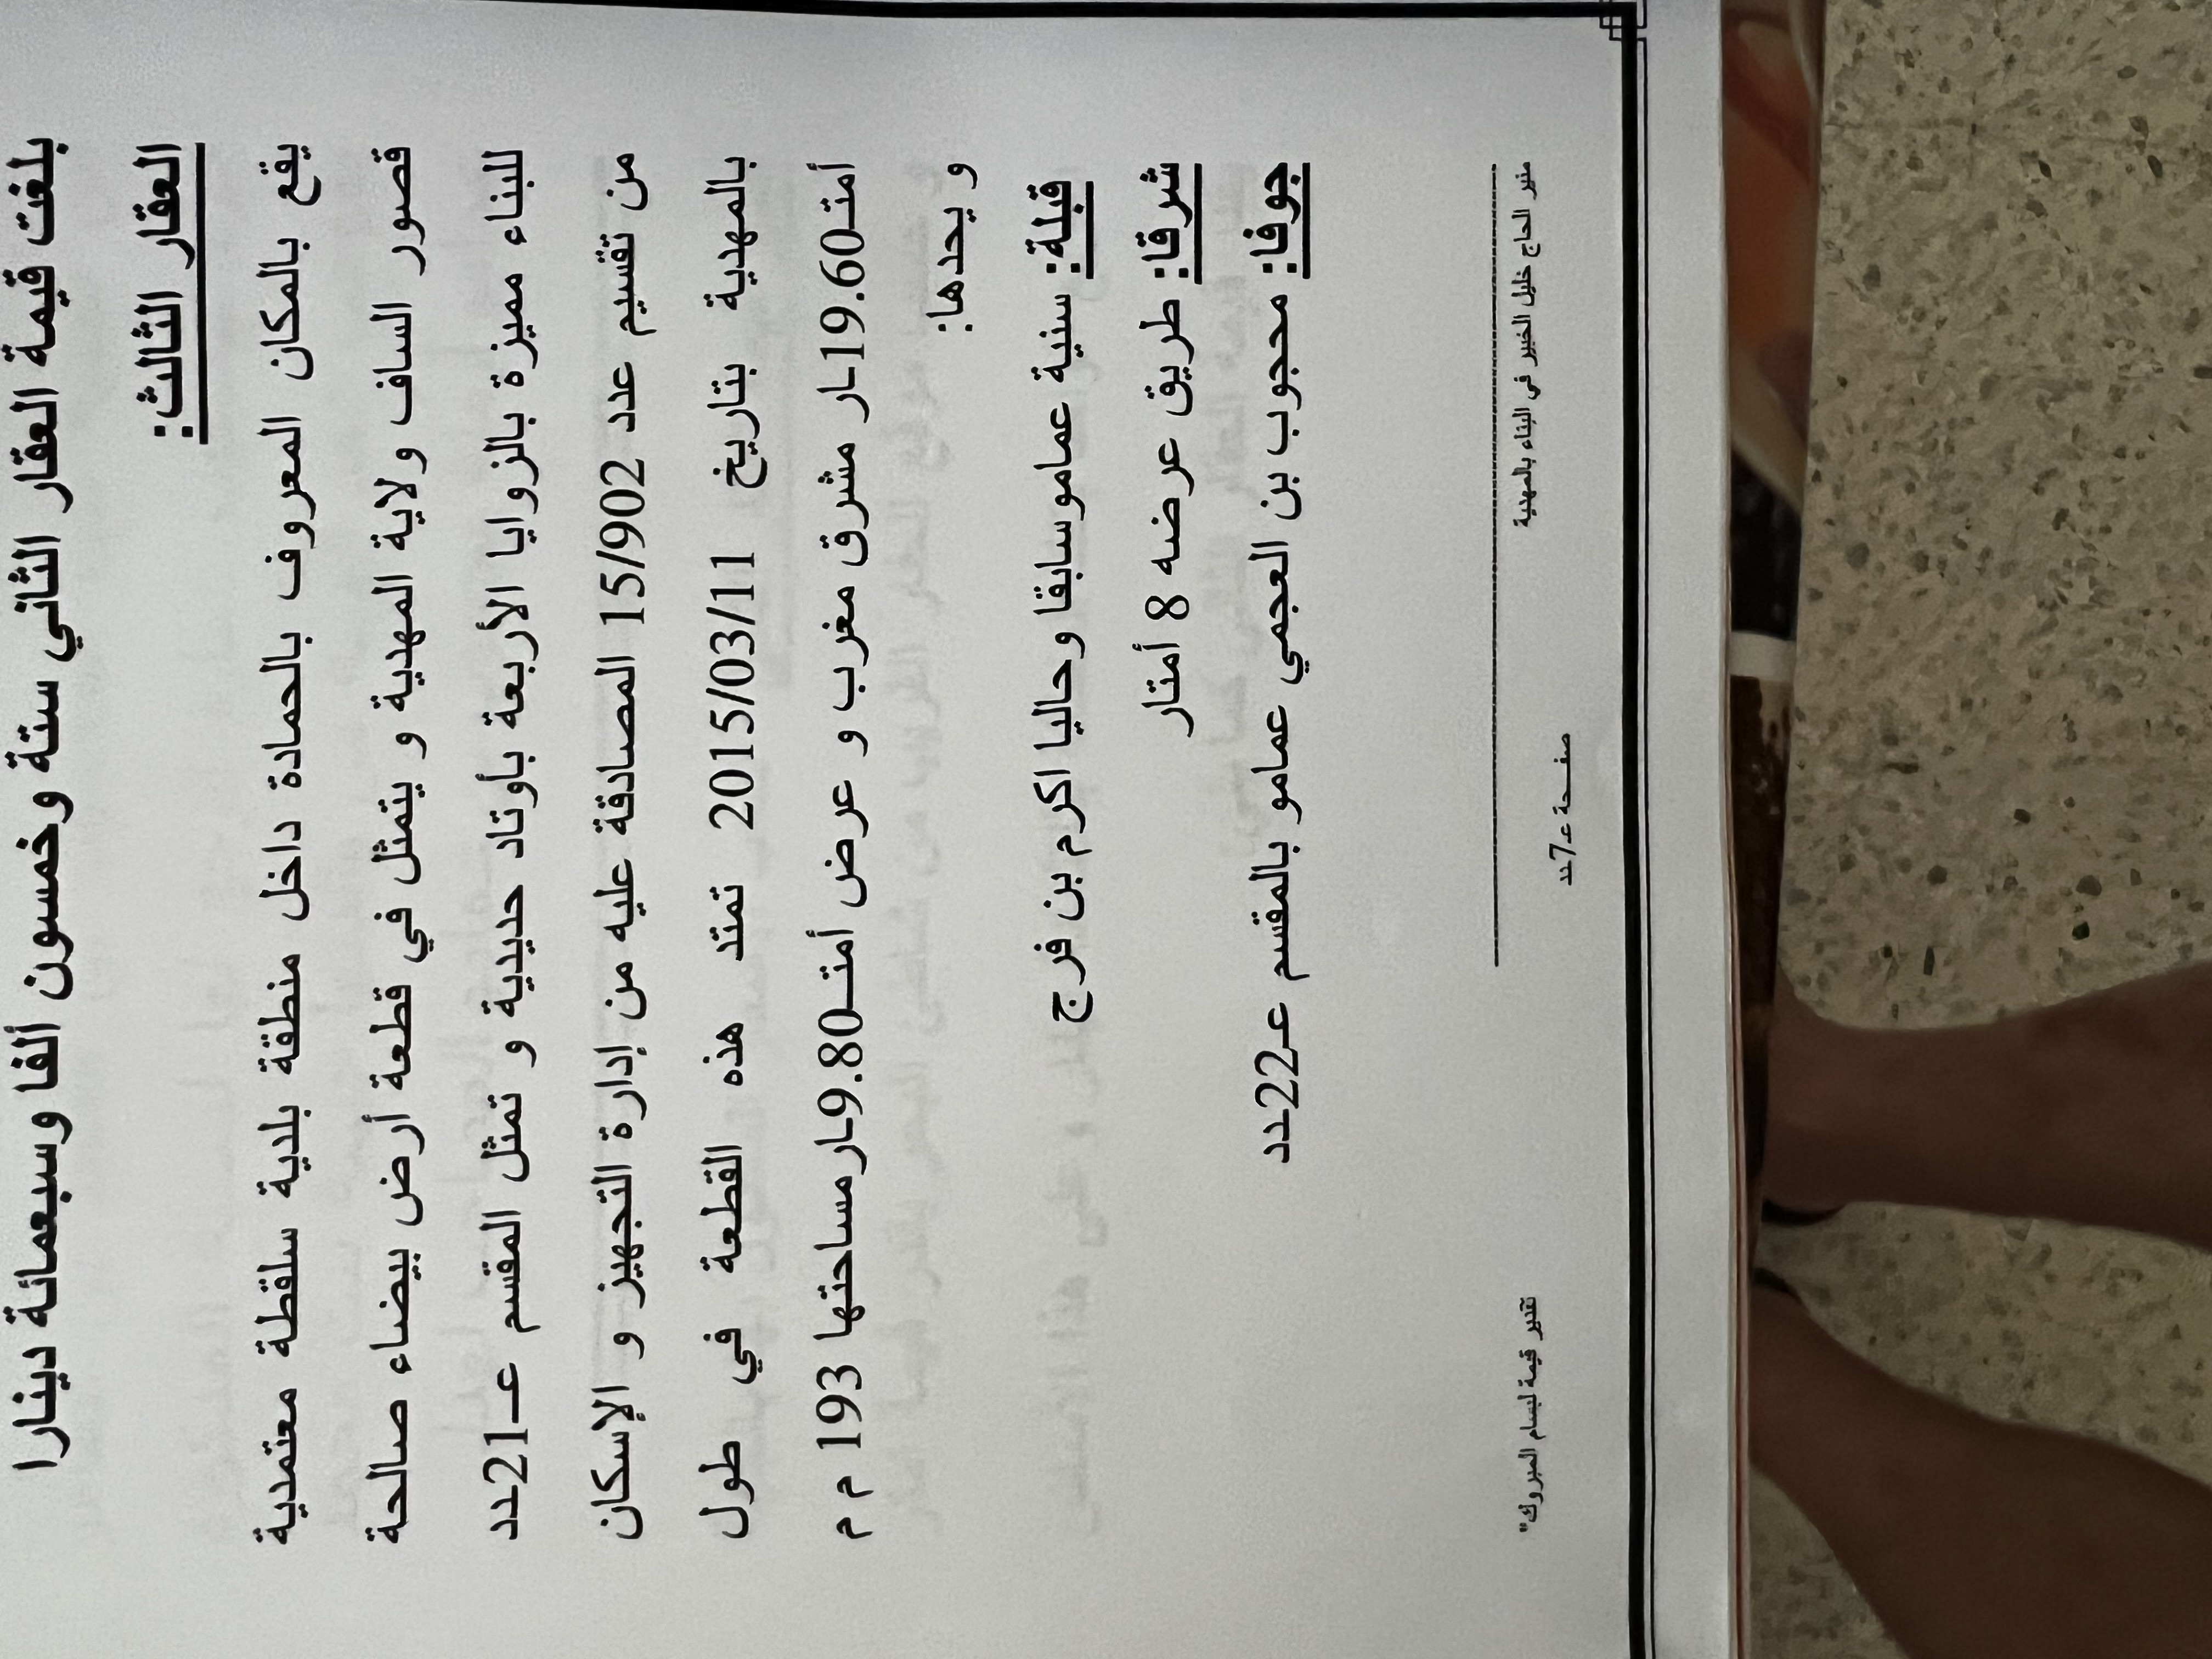 بلغت قيمة العقار الثاني ستة وخمسون ألفا وسبعمائة دينارا
العقار الثالث:
يقع بالمكان المعروف بالحمادة داخل منطقة بلدية سلقطة معتمدية
قصور الساف ولاية المهدية و يتمثل في قطعة أرض بيضاء صالحة
للبناء مميزة بالزوايا الأربعة بأوتاد حديدية و تمثل المقسم عـ21ـدد
من تقسيم عدد 15/902 المصادقة عليه من إدارة التجهيز و الإسكان
بالمهدية بتاريخ 2015/03/11 تمتد هذه القطعة في طول
أمتـ19.60ـار مشرق مغرب و عرض أمتـ9.80ـار مساحتها 193 م م
و يحدها:
قبلة: سنية عمامو سابقا وحاليا اكرم بن فرج
شرقا: طريق عرضه 8 أمتار
جوفا: محجوب بن العجمي عمامو بالمقسم عـ22ـدد
منير الحاج خليل الخبير في البناء بالمهدية
تقدير قيمة لبسام المبروك"
صفـحة عـ7ـدد